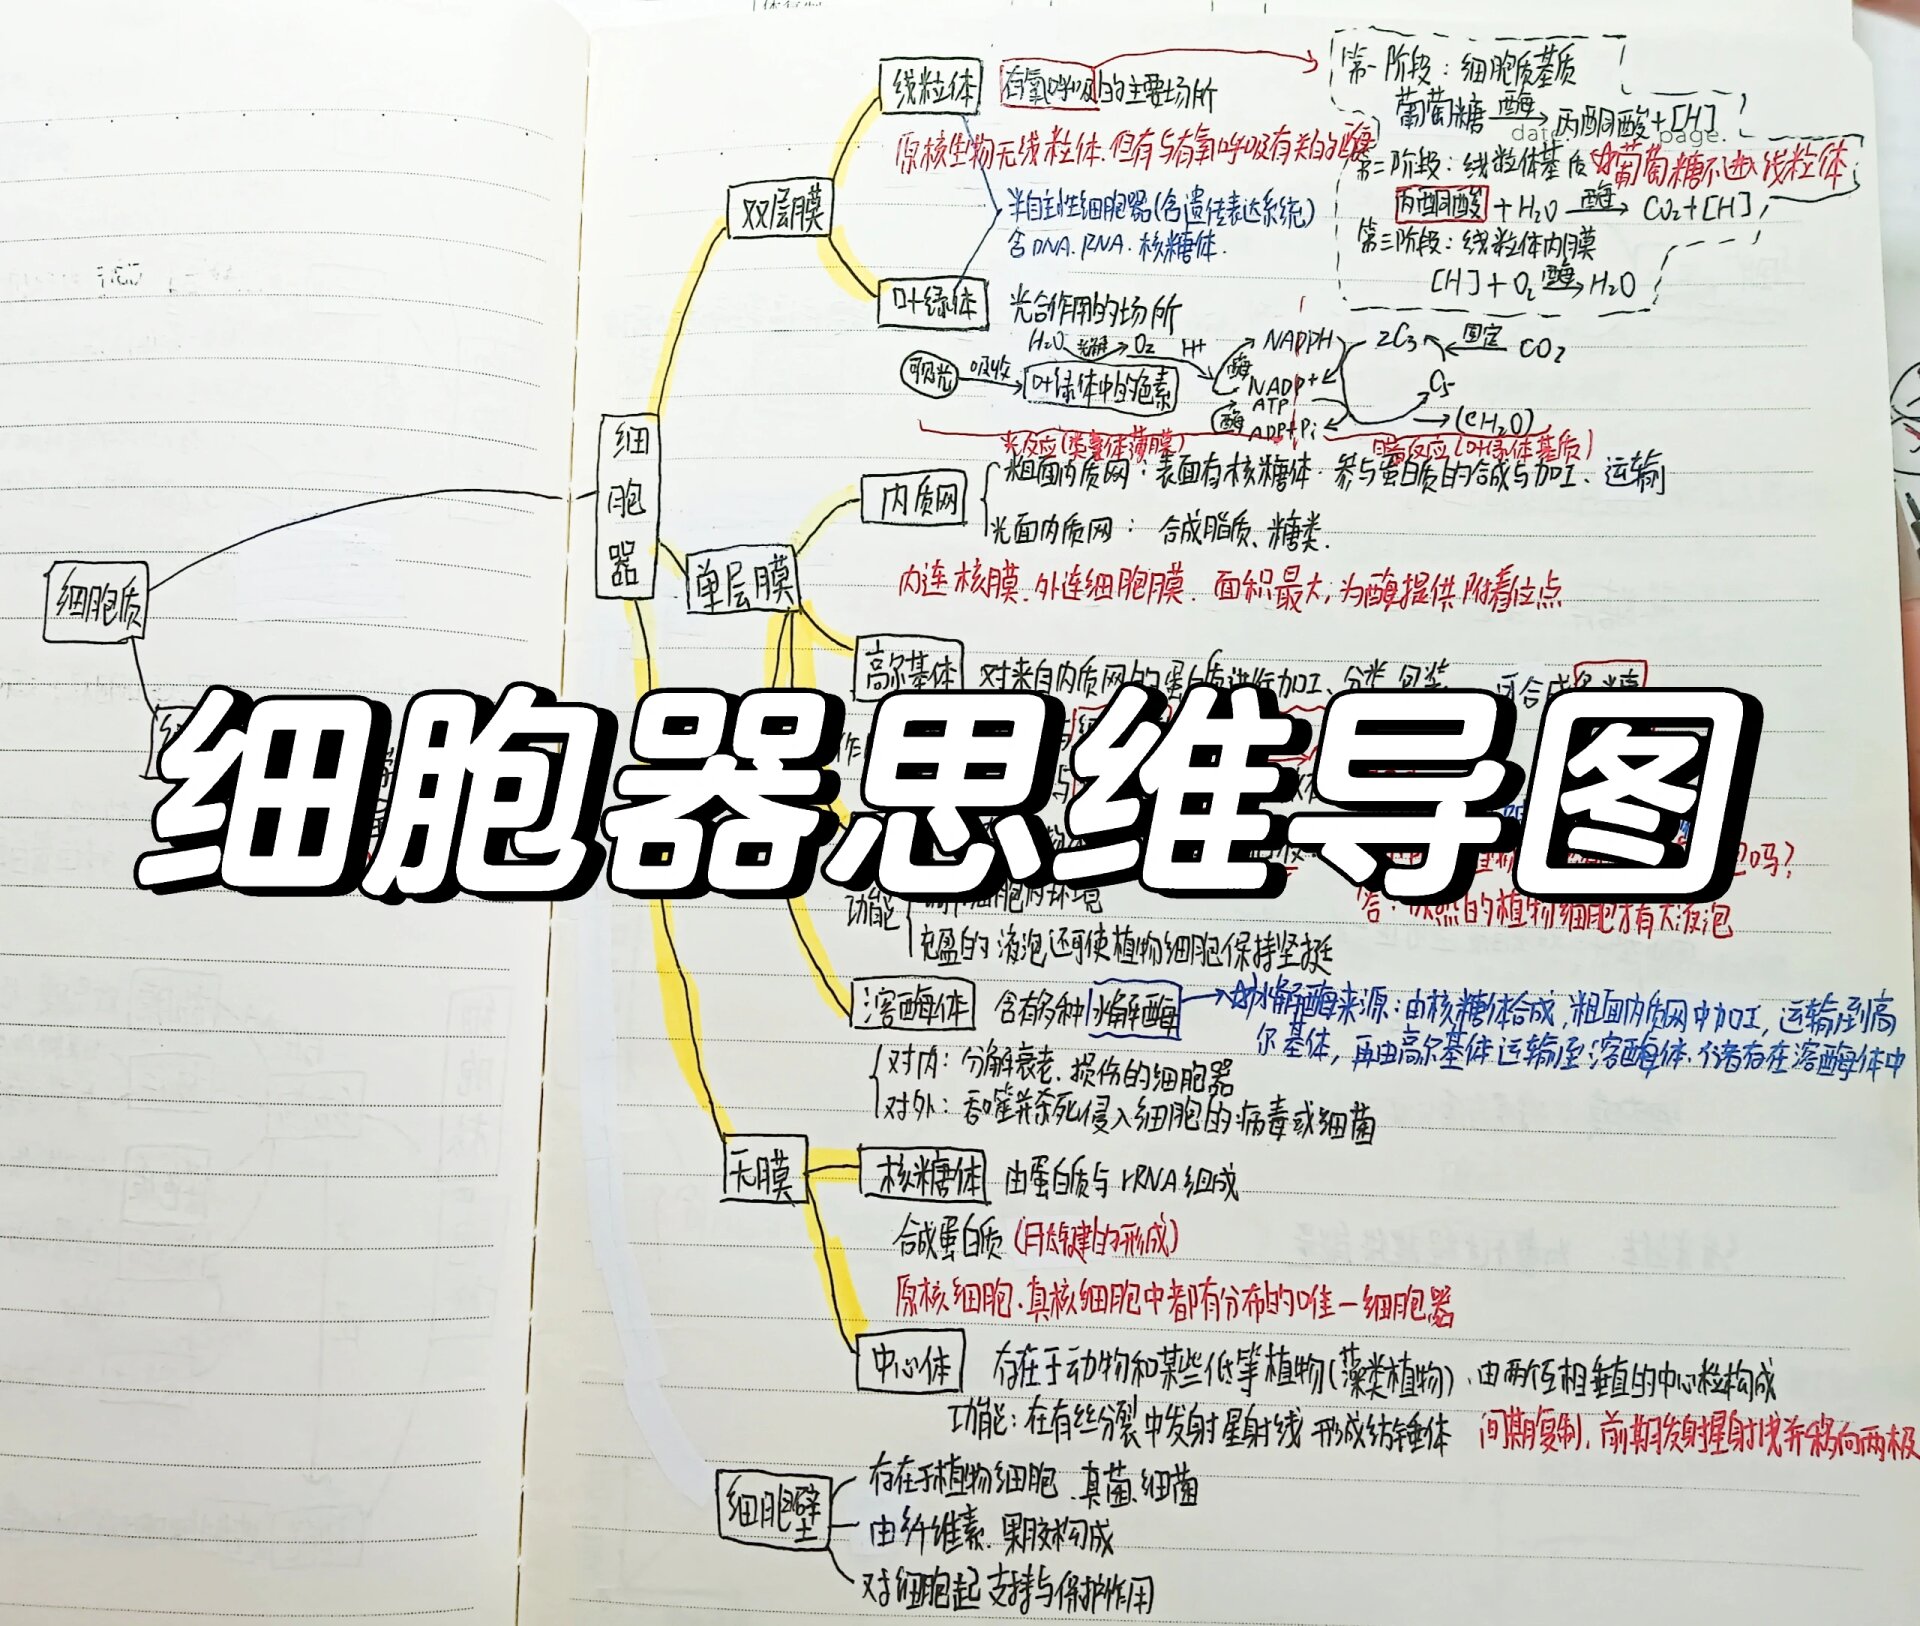 线粒体 有氧呼吸的主要场所
原核生物无线粒体.但有与有氧呼吸有关的酶
第一阶段：细胞质基质
葡萄糖 酶 丙酮酸+[H]
date page.
第二阶段：线粒体基质 葡萄糖不进入线粒体
丙酮酸 + H2O 酶 CO2+[H]
第三阶段：线粒体内膜
[H]+O2 酶 H2O
双层膜
半自主性细胞器(含遗传表达系统)
含DNA.RNA.核糖体.
叶绿体 光合作用的场所
H2O 光解 O2 H+ NADPH 2C3 固定 CO2
可见光 吸收 叶绿体中的色素 酶 NADP+ C5
酶 ATP ADP+Pi (CH2O)
光反应(类囊体薄膜) 暗反应(叶绿体基质)
细胞器
内质网
粗面内质网：表面有核糖体.参与蛋白质的合成与加工、运输
光面内质网： 合成脂质、糖类.
内连核膜.外连细胞膜. 面积最大,为酶提供附着位点
单层膜
细胞质
高尔基体 对来自内质网的蛋白质进行加工、分类.包装 可合成多糖
细胞器思维导图
吗?
功能 细胞内环境
答： 的植物细胞才有大液泡
充盈的液泡还可使植物细胞保持坚挺
溶酶体 含有多种水解酶 水解酶来源：由核糖体合成,粗面内质网中加工,运输到高
尔基体,再由高尔基体运输至溶酶体.储存在溶酶体中
对内：分解衰老.损伤的细胞器
对外：吞噬并杀死侵入细胞的病毒或细菌
无膜
核糖体 由蛋白质与rRNA组成
合成蛋白质(肽键的形成)
原核细胞、真核细胞中都有分布的唯一细胞器
中心体 存在于动物和某些低等植物(藻类植物).由两个互相垂直的中心粒构成
功能：在有丝分裂中发射星射线形成纺锤体 间期复制,前期发射星射线并移向两极
细胞壁
存在于植物细胞、真菌、细菌
由纤维素.果胶构成
对细胞起支持与保护作用